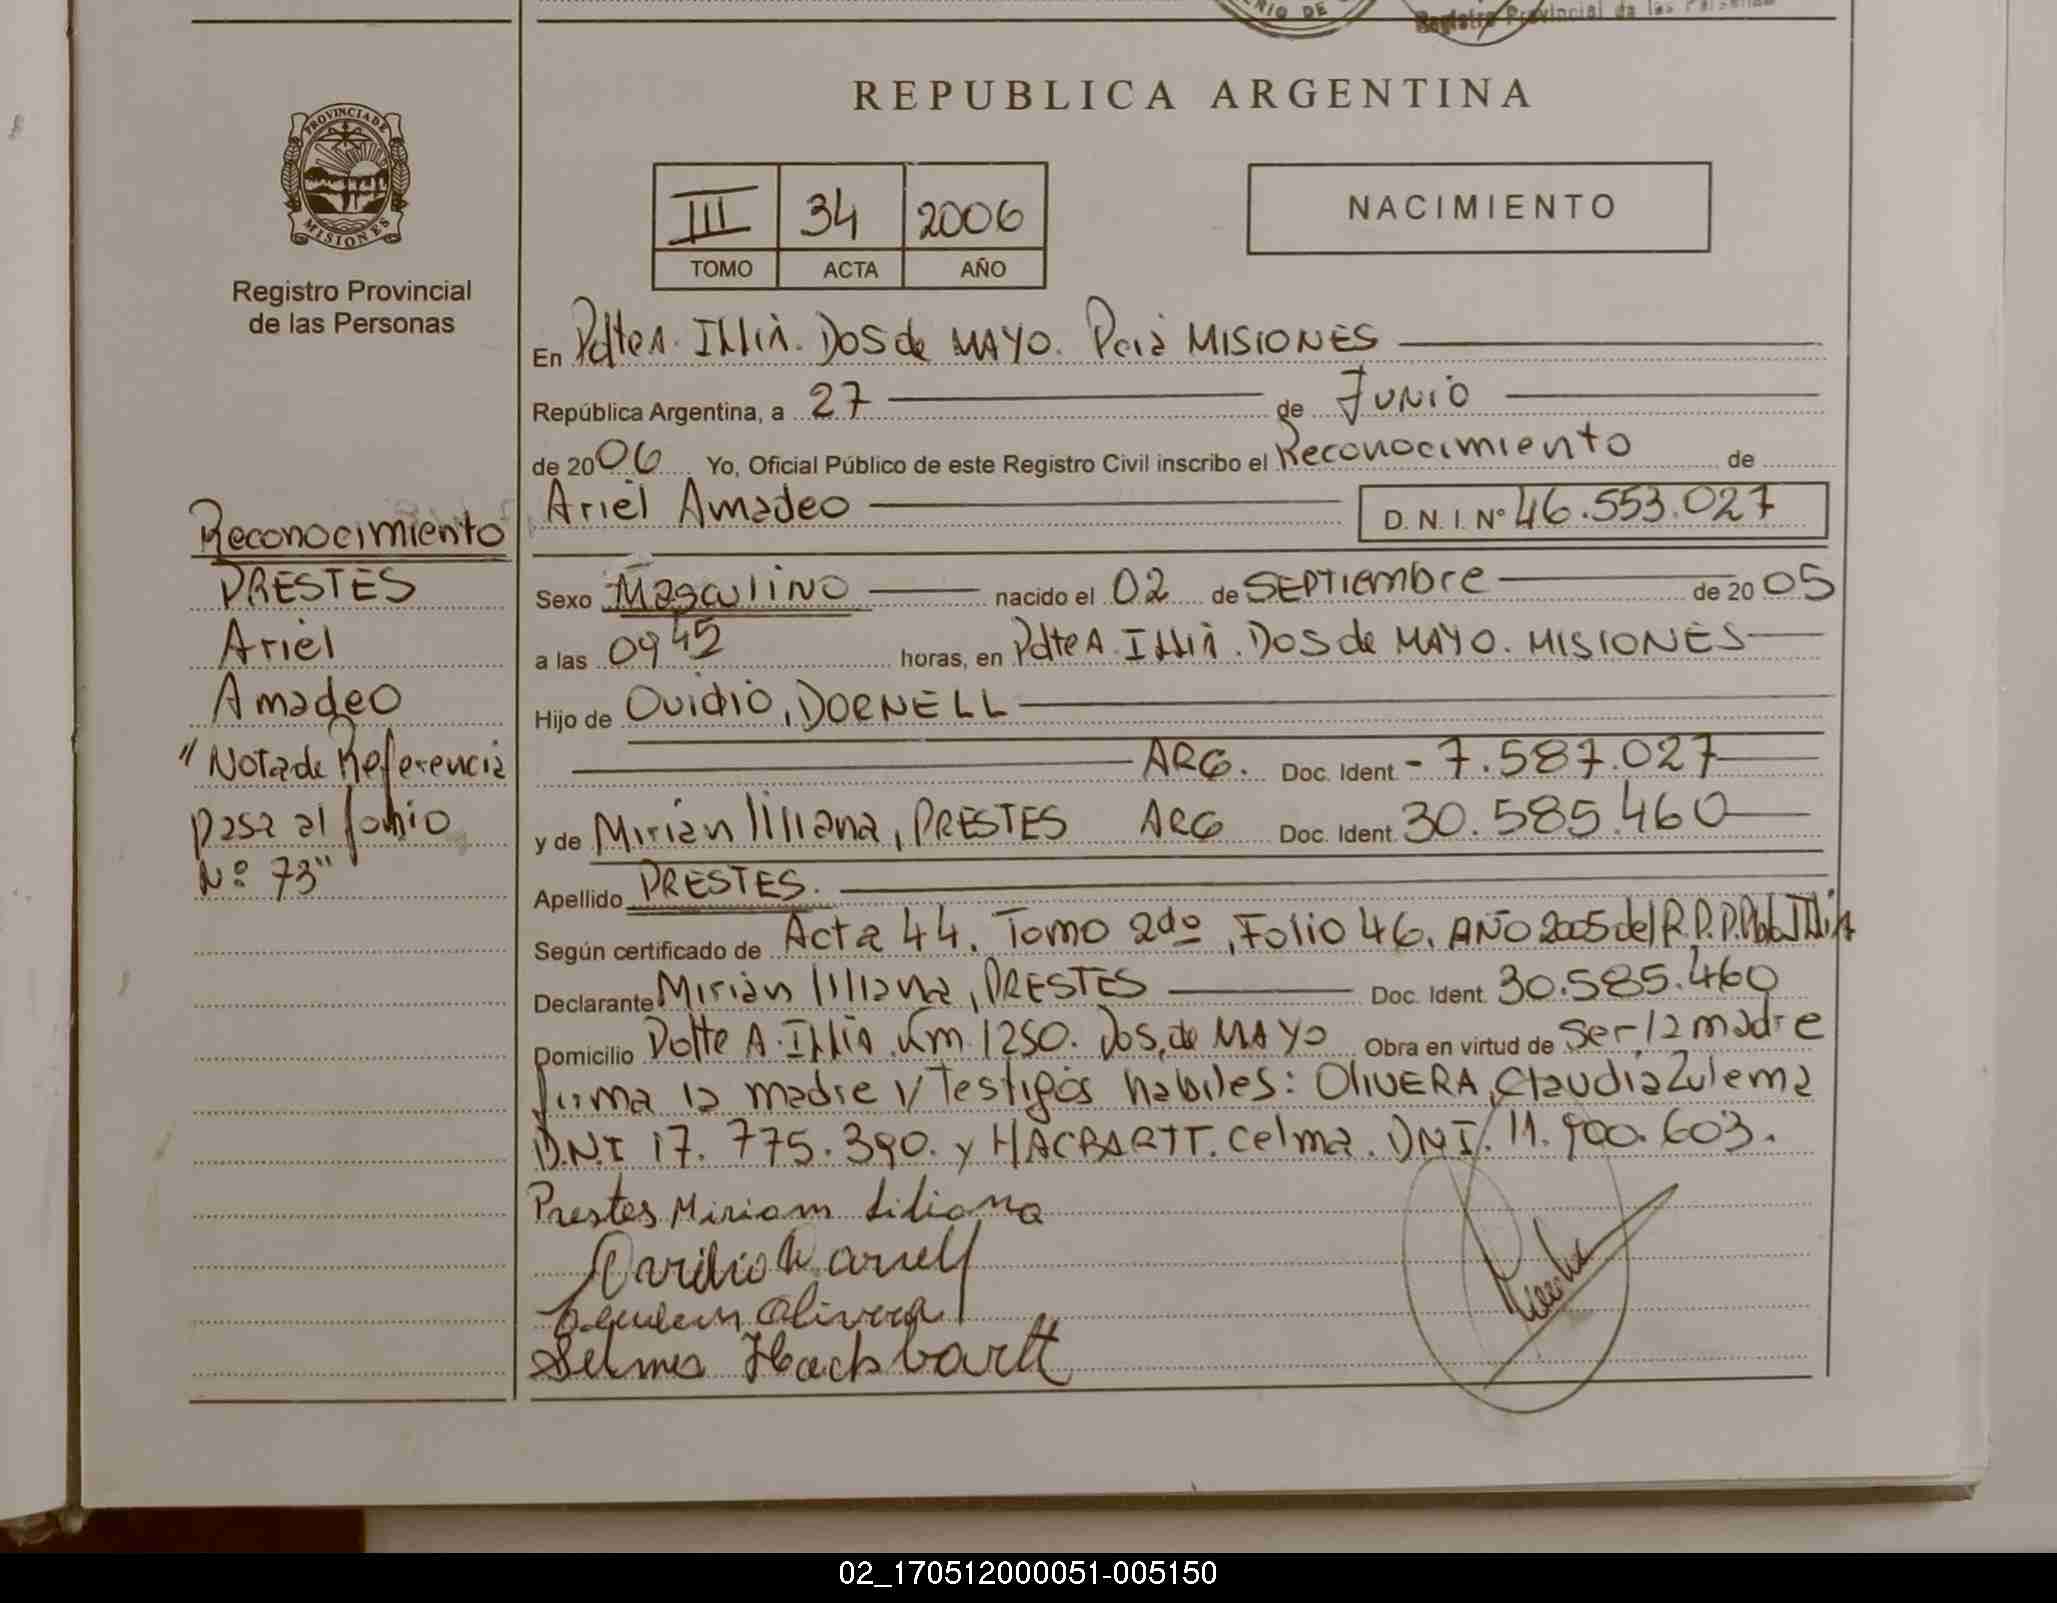 Registro Provincial de las Personas
REPUBLICA ARGENTINA
PROVINCIA DE
MISIONES
Registro Provincial
de las Personas
III 34 2006
TOMO ACTA AÑO
NACIMIENTO
En Pdte A. Illia. DOS de MAYO. Pcia MISIONES
República Argentina, a 27 de Junio
de 2006 Yo, Oficial Público de este Registro Civil inscribo el Reconocimiento de
Ariel Amadeo D. N. I. Nº 46.553.027
Sexo Masculino nacido el 02 de SEPTIEMBRE de 2005
a las 09 45 horas, en Pdte A. Illia. DOS de MAYO. MISIONES
Hijo de Ovidio, DORNELL
ARG. Doc. Ident. - 7.587.027
y de Mirian liliana, PRESTES ARG Doc. Ident. 30.585.460
Apellido PRESTES.
Según certificado de Acta 44. Tomo 2do, Folio 46. AÑO 2005 del R.P.P. Pdte Illia
Declarante Mirian liliana, PRESTES Doc. Ident. 30.585.460
Domicilio Pdte A. Illia. Km. 1250. Dos de MAYO Obra en virtud de ser la madre
firma la madre y Testigos habiles: OLIVERA, Claudia Zulema
D.N.I 17.775.390. y HACBARTT. Celma. DNI. 11.900.603.
Prestes Miriam Liliana
Ovidio Dornell
Olivera
Selma Hackbartt
Reconocimiento
PRESTES
Ariel
Amadeo
"Nota de Referencia
pasa al folio
Nº 73"
02_170512000051-005150